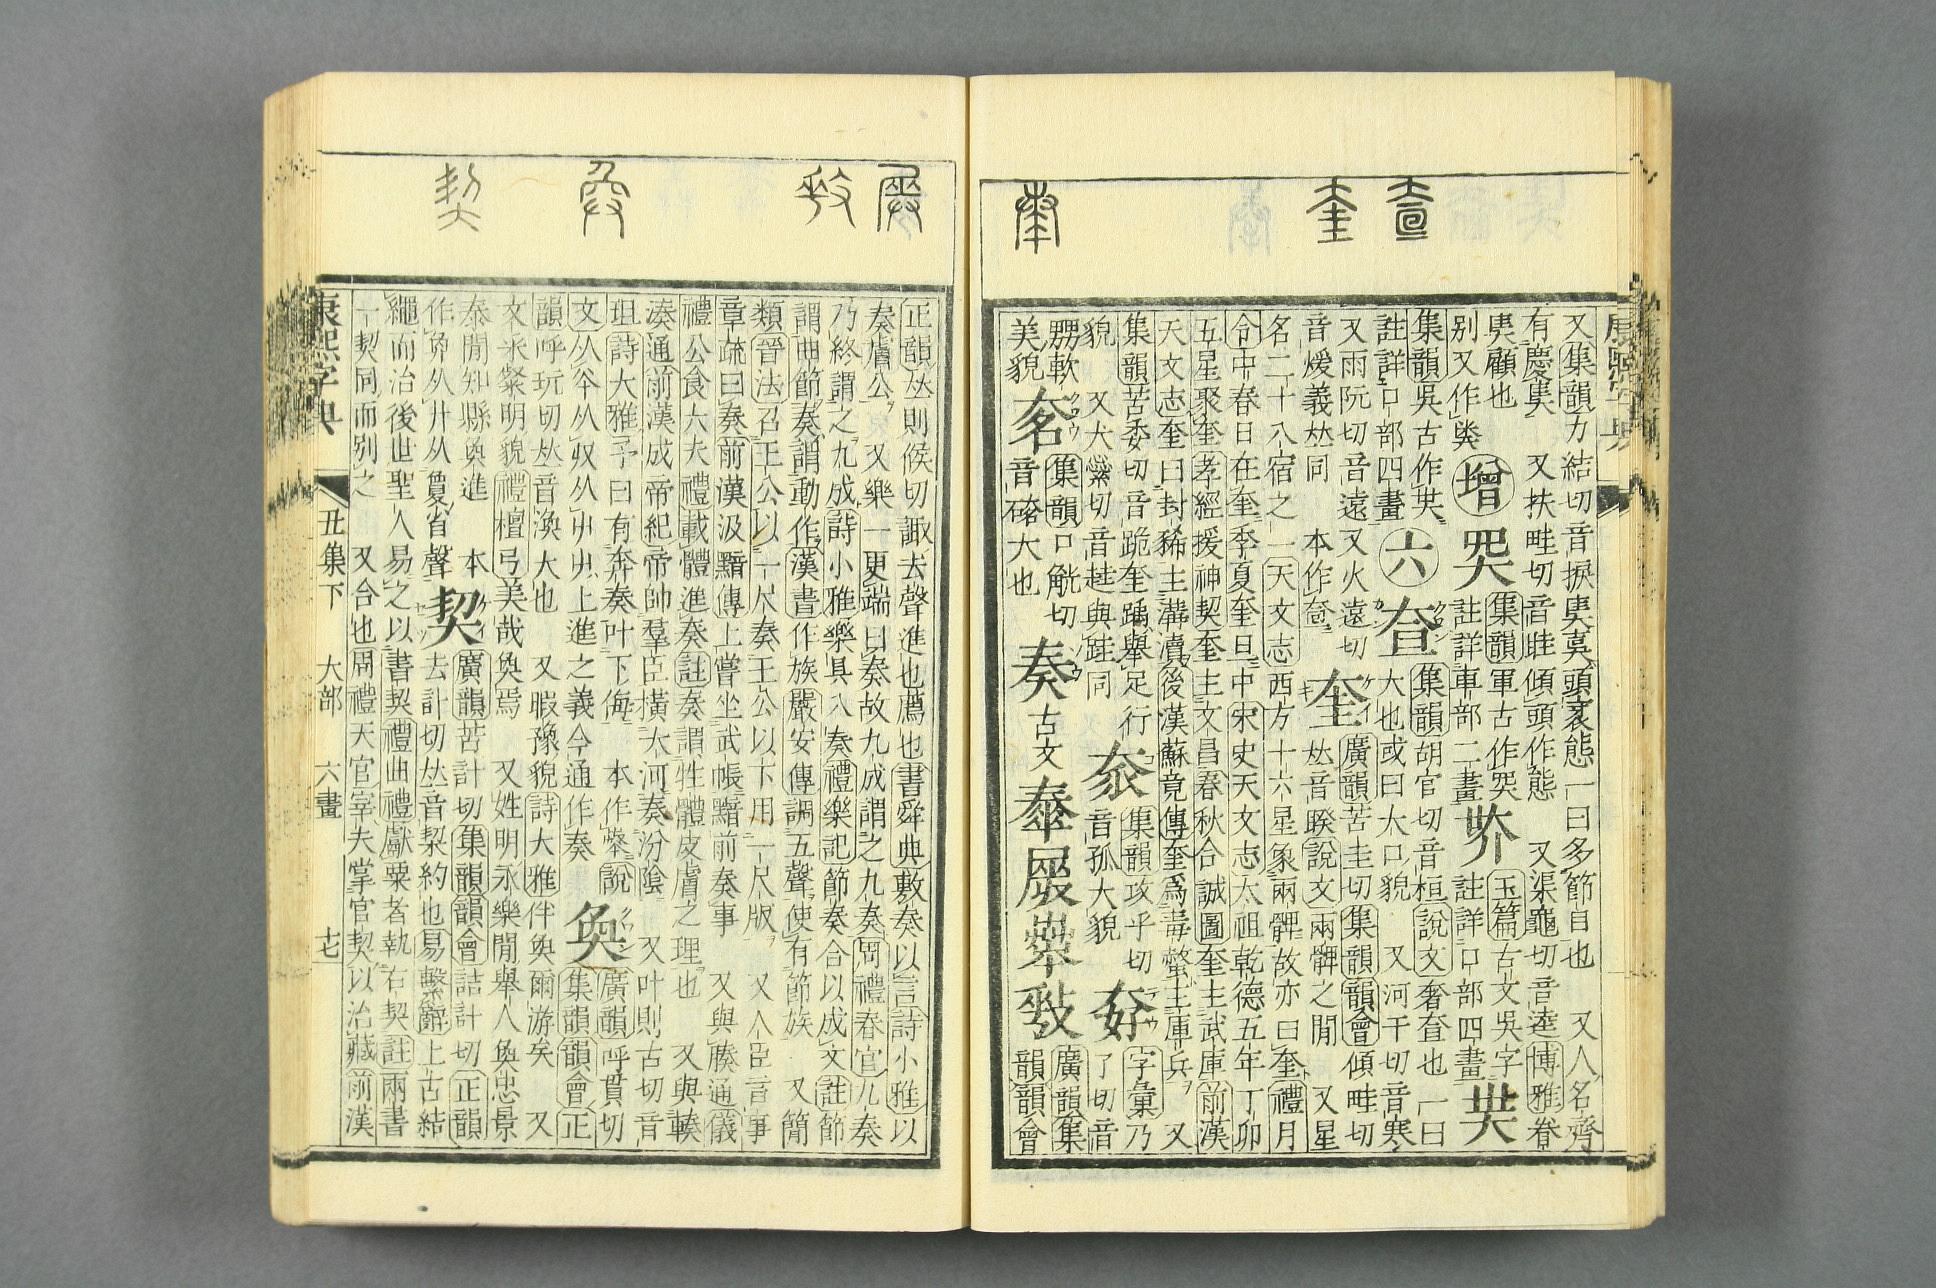 又集韻力結切音捩奊奊頭衺態一曰多節目也　又人名齊
有慶奊　又扶畦切音眭傾頭作態　又渠龜切音逵博雅眷
奊顧也　集韻軍古作𡘜　玉篇古文吳字
别又作㚖　增　𡘜　註詳車部二畫　註詳口部四畫
集韻吳古作
註詳口部四畫　六　奆　集韻胡官切音桓說文奢奆也一曰
又雨阮切音遠又火遠切　大也或曰大口貌　又河干切音寒
音煖義𠀤同　本作奆　奎　廣韻苦圭切集韻韻會傾畦切
𠀤音睽說文兩髀之閒　又星
名二十八宿之一天文志西方十六星象兩髀故亦曰奎禮月
令中春日在奎季夏奎旦中宋史天文志太祖乾德五年丁卯
五星聚奎孝經援神契奎主文昌春秋合誠圖奎主武庫前漢
天文志奎曰封豨主溝瀆後漢蘇竟傳奎爲毒螫主庫兵　又
集韻苦委切音跪奎踽舉足行　集韻攻乎切　字彙乃
貌　又犬蘂切音跬與跬同　音孤大貌　了切音
嫐軟　集韻口觥切　廣韻集
美貌　音硌大也　奏　古文　韻韻會
正韻𠀤則候切諏去聲進也薦也書舜典敷奏以言詩小雅以
奏膚公　又樂一更端曰奏故九成謂之九奏周禮春官九奏
乃終謂之九成詩小雅樂具入奏禮樂記節奏合以成文註節
謂曲節奏謂動作漢書作族嚴安傳調五聲使有節族　又簡
類晉法召王公以一尺奏王公以下用一尺版　又人臣言事
章疏曰奏前漢汲黯傳上嘗坐武帳黯前奏事　又與腠通儀
禮公食大夫禮載體進奏註奏謂牲體皮膚之理也　又與輳
湊通前漢成帝紀帝帥羣臣橫大河奏汾陰　又叶則古切音
珇詩大雅予曰有奔奏叶下侮　本作𡴥說　廣韻呼貫切
文从夲从収从屮屮上進之義今通作奏　奐　集韻韻會正
韻呼玩切𠀤音渙大也　又暇豫貌詩大雅伴奐爾游矣　又
文采粲明貌禮檀弓美哉奐焉　又姓明永樂閒舉人奐忠景
泰閒知縣奐進　本　廣韻苦計切集韻韻會詰計切正韻
作奐从廾从敻省聲　契　去計切𠀤音契約也易繫辭上古結
繩而治後世聖人易之以書契禮曲禮獻粟者執右契註兩書
一契同而别之　又合也周禮天官宰夫掌官契以治藏前漢
康熙字典　丑集下　大部　六畫　十七